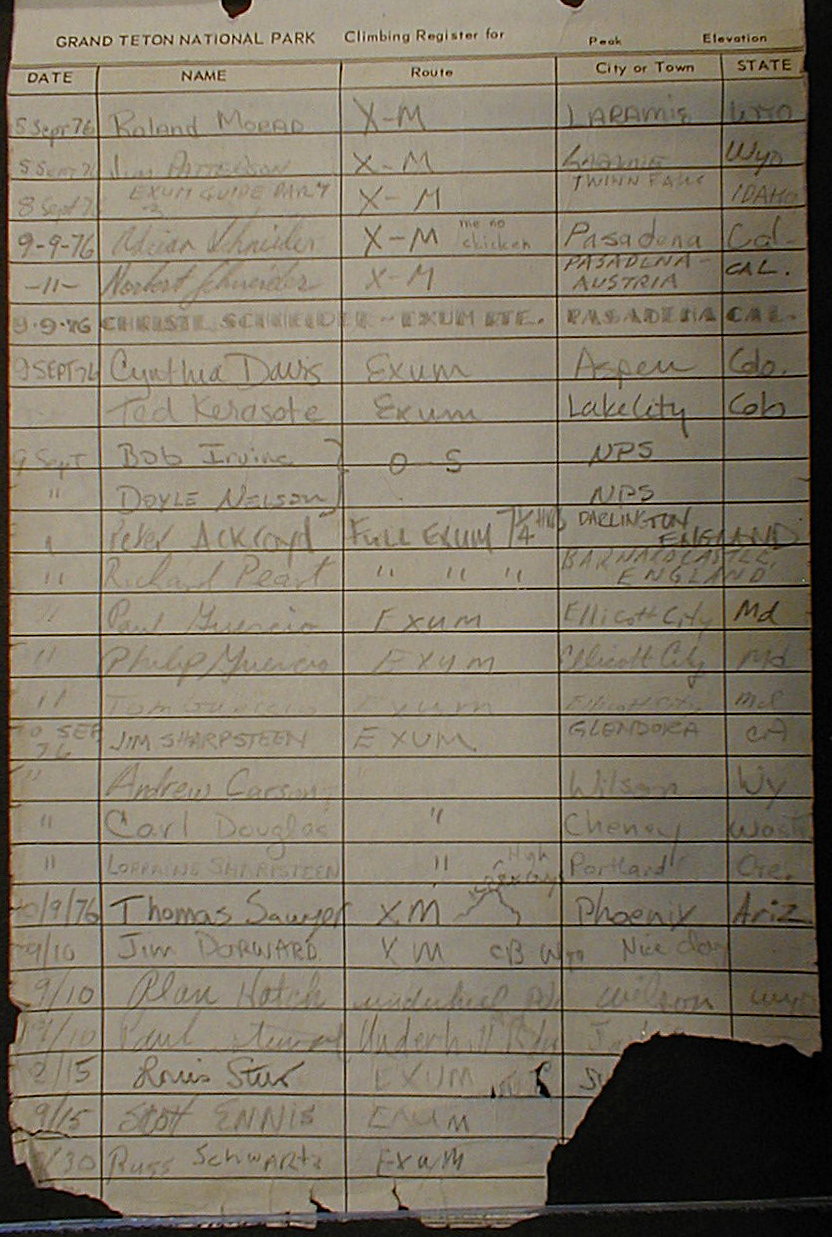 GRAND TETON NATIONAL PARK Climbing Register for Peak Elevation
DATE NAME Route City or Town STATE
5 Sept 76 Roland MORAD X-M LARAMIE Wyo
5 Sept 76 Jim PATTERSON X-M LARAMIE Wyo
8 Sept 76 EXUM GUIDE PARTY -3 X-M TWINN FALLS IDAHO
9-9-76 Adrian Schneider X-M me no chicken Pasadena Cal-
-11- Norbert Schneider X-M PASADENA - AUSTRIA CAL.
9-9-76 CHRISTL SCHNEIDER - EXUM RTE. PASADENA CAL.
9 SEPT 76 Cynthia Davis Exum Aspen Colo.
Ted Kerasote Exum Lake City Colo
9 Sept Bob Irvine O-S NPS
" DOYLE NELSON NPS
Peter Ackroyd FULL EXUM 7 1/4 HRS DARLINGTON ENGLAND
" Richard Peart " " " BARNARDCASTLE, ENGLAND
" Paul Guercio Exum Ellicott City Md
" Philip Guercio Exum Ellicott City Md
" Tom Guercio Exum Ellicott City Md
10 SEP 76 JIM SHARPSTEEN EXUM GLENDORA CA
" Andrew Carson Wilson Wy
" Carl Douglas " Cheney Wash
" LORRAINE SHARPSTEEN " High Portland Ore.
10/9/76 Thomas Sawyer XM Phoenix Ariz
9/10 Jim DORWARD XM CB Wyo Nice day
9/10 Alan Hatch underhill Wilson Wyo
/10 Paul Underhill
/15 Louis Stur EXUM
9/15 Scott ENNIS EXUM
/30 Russ Schwartz Exum